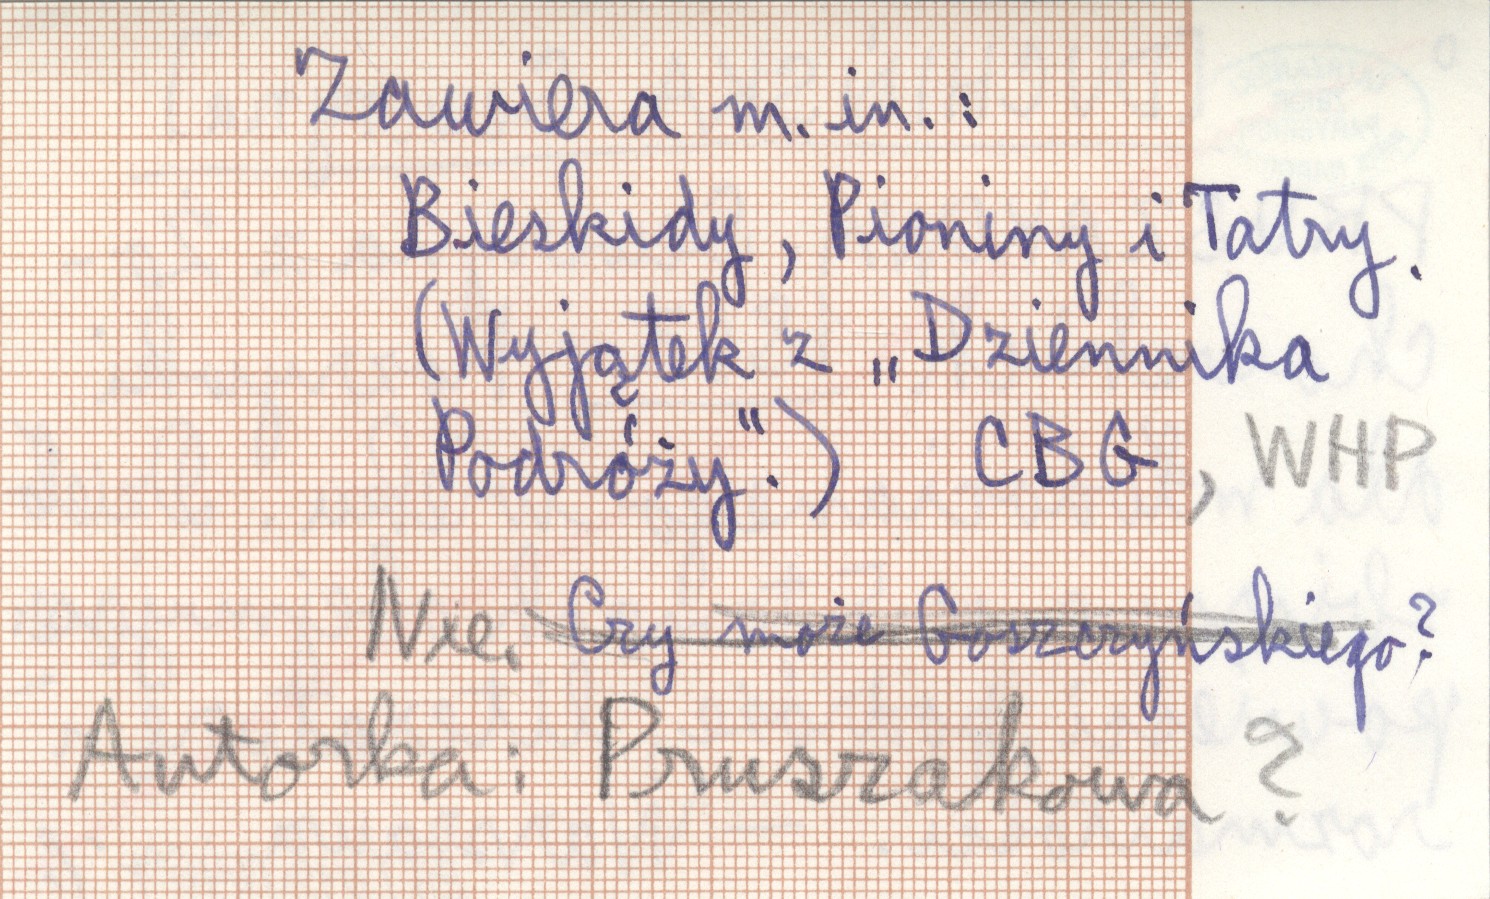 Zawiera m. in.:
Bieskidy, Pioniny i Tatry.
(Wyjątek z „Dziennika
Podróży".) CBG, WHP
Nie. Czy może Goszczyńskiego?
Autorka: Pruszakowa?